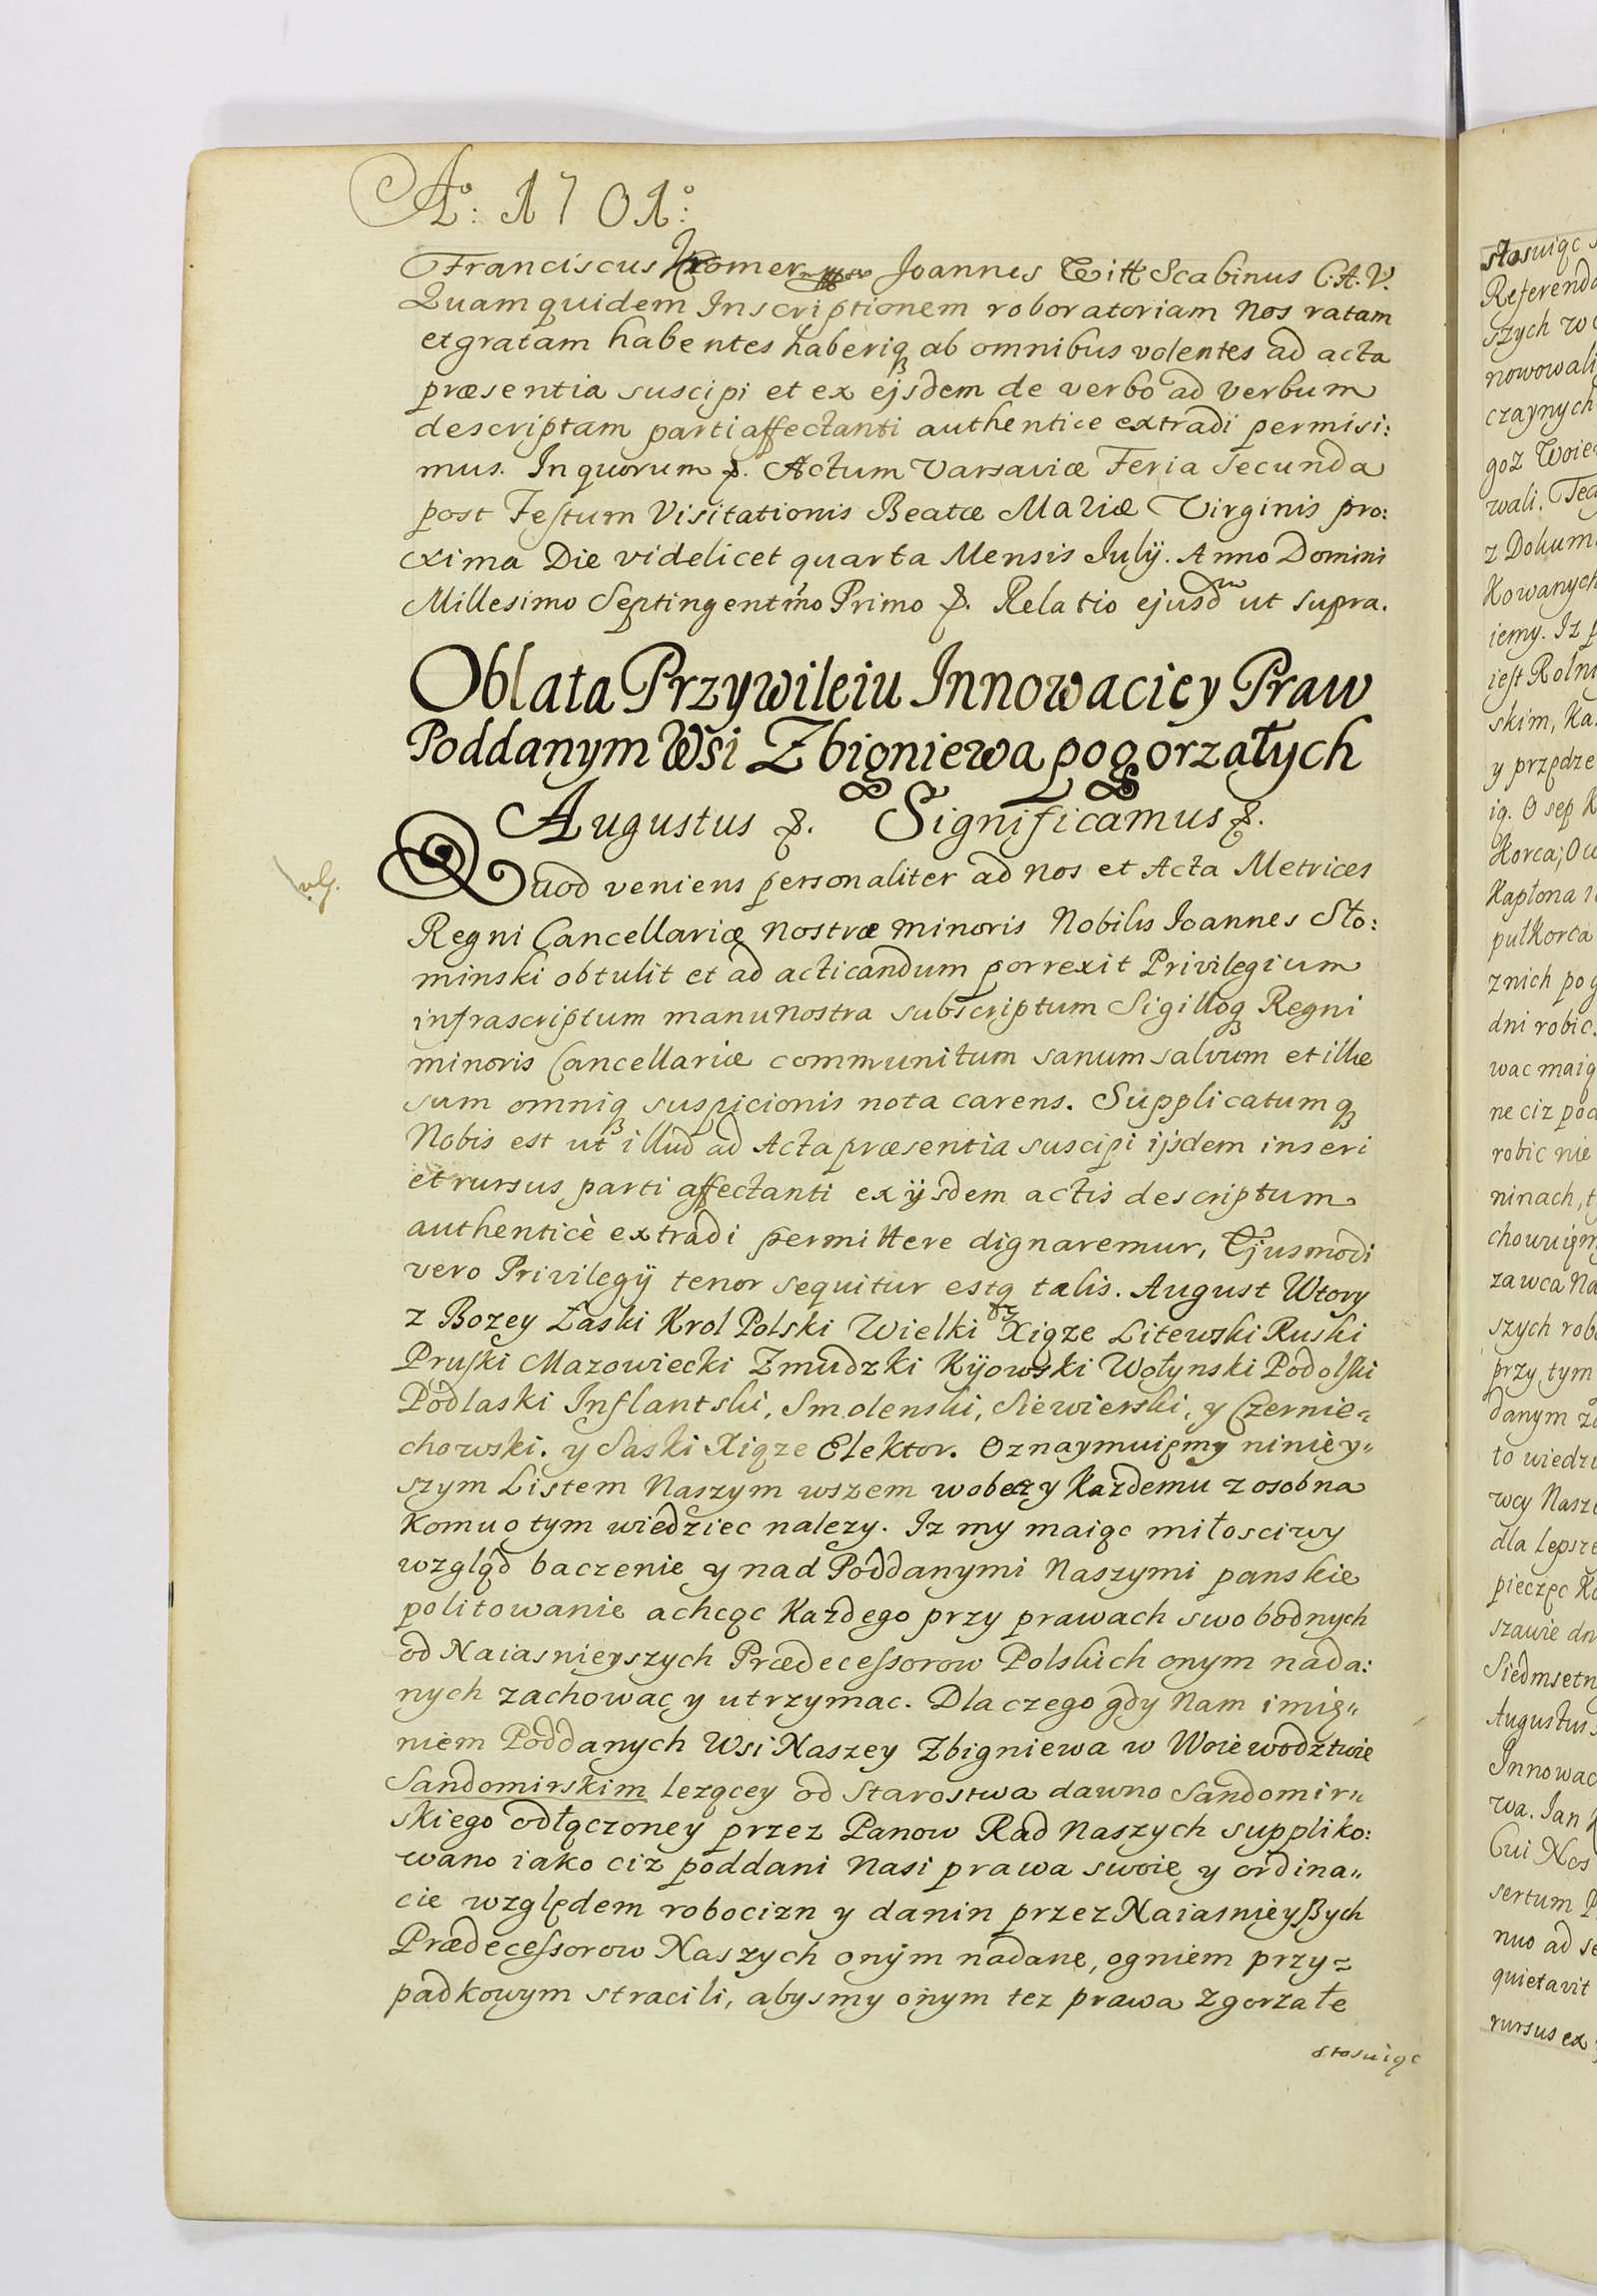 Aº: 1701º:
Franciscus Kromer Joannes Witt Scabinus C.A.V.
Quam quidem Inscriptionem roboratoriam Nos ratam
et gratam habentes haberiq ab omnibus volentes ad acta
præsentia suscipi et ex ejsdem de verbo ad verbum
descriptam parti affectanti authentice extradi permisi:
mus. In quorum &. Actum Varsaviæ Feria Secunda
post Festum Visitationis Beatæ Mariæ Virginis pro:
xima Die videlicet quarta Mensis Julÿ. Anno Domini
Millesimo Septingentmo Primo &. Relatio ejusdm ut supra.
Oblata Przywileiu Innowaciey Praw
Poddanym Wsi Zbigniewa pogorzałych
Augustus &. Significamus &.
Quod veniens personaliter ad nos et Acta Metrices
Regni Cancellariæ nostræ minoris Nobilis Joannes Sło:
minski obtulit et ad acticandum porrexit Privilegium
infrascriptum manu nostra subscriptum Sigilloq Regni
minoris Cancellariæ communitum sanum salvum et illæ
sum omniq suspicionis nota carens. Supplicatumq
Nobis est ut illud ad Acta præsentia suscipi ijsdem inseri
et rursus parti affectanti ex ijsdem actis descriptum
authenticè extradi permittere dignaremur, Ejusmodi
vero Privilegÿ tenor sequitur estq talis. August Wtory
z Bozey Łaski Krol Polski Wielki Xiąze Litewski Ruski
Pruski Mazowiecki Zmudzki Kijowski Wołynski Podolski
Podlaski Inflantski, Smolenski, Siewierski, y Czernie=
chowski. y Saski Xiąze Elektor. Oznaymuięmy niniey„
szym Listem Naszym wszem wobez y Kazdemu z osobna
Komu o tym wiedziec nalezy. Iz my maiąc miłosciwy
wzgląd baczenie y nad Poddanymi Naszymi panskie
politowanie a chcąc Kazdego przy prawach swobodnych
od Naiasnieyszych Prædecessorow Polskich onym nada:
nych zachowac y utrzymac. Dla czego gdy Nam imię„
niem Poddanych Wsi Naszey Zbigniewa w Woiewodztwie
Sandomirskim lezącey od Starostwa dawno Sandomir„
skiego odłączoney przez Panow Rad Naszych suppliko:
wano iako ciz poddani Nasi prawa swoie y ordina„
cie względem robocizn y danin przez Naiasnieyßych
Prædecessorow Naszych onym nadane, ogniem przy=
padkowym stracili, abysmy onym tez prawa zgorzałe
stosuiąc
stosuiąc
Referenda
szych w
nowowali
czaynych
goz Woie
wali. Teg
z Dokum
Kowanych
iemy. Iz p
iest Rolni
skim, Ka
y przędze
ią. O sep K
Korca; Ow
Kapłona
pułKorca
z nich pog
dni robic.
wac maią
ne ciz pod
robic nie
ninach, t
chowuięm
zawca Na
szych rob
przy tym
danym za
to wiedzi
wcy Nasz
dla Lepsze
pieczęc Ko
szawie dn
Siedmsetn
Augustus
Innowac
wa. Jan
Cui Nos
sertum P
nuo ad se
quietavit
rursus ex